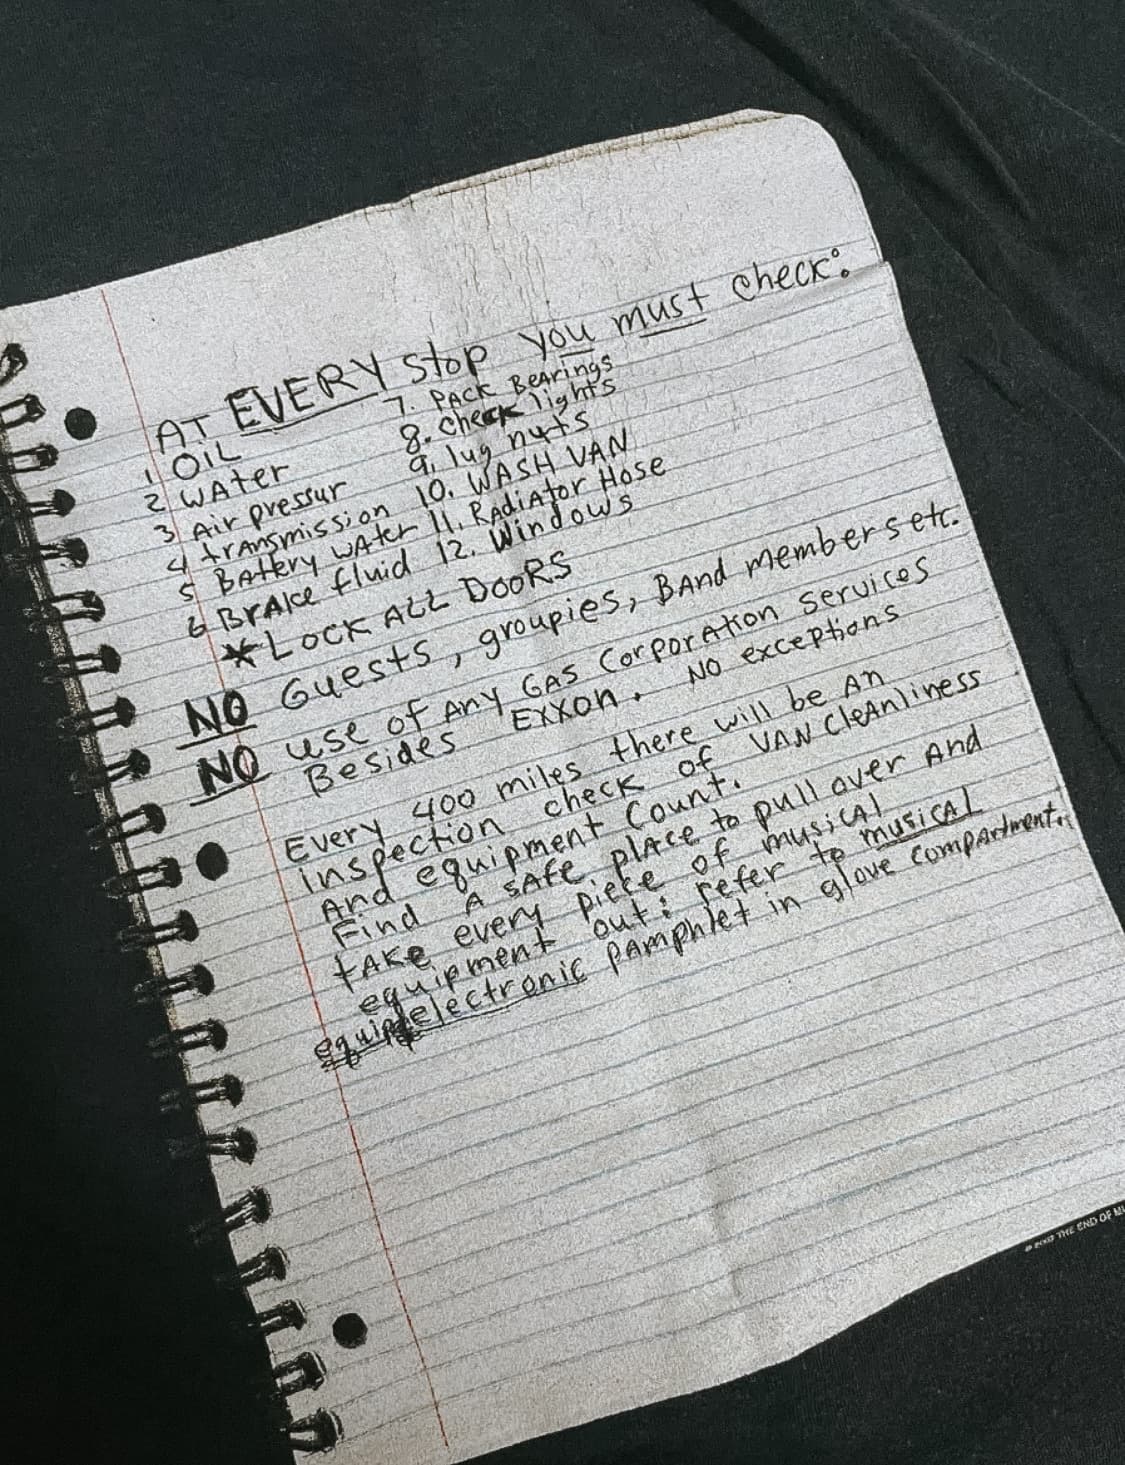 AT EVERY stop you must check:
1 OiL 7. PACK BEArings
2 WAter 8. check lights
3 Air pressur 9. lug nuts
4 trANsmission 10. WASH VAN
5 BAttery WAter 11. RADiAtor Hose
6 BrAke fluid 12. Windows
*LOCK ALL DOORS
NO Guests, groupies, BAnd members etc.
NO use of ANY GAS CorporAtion services
Besides EXXON. NO exceptions
Every 400 miles there will be An
inspection check of VAN CleAnliness
And equipment Count.
Find A sAfe plAce to pull over And
tAke every piece of musicAl
equipment out: refer to musicAL
electronic pAmphlet in glove compArtment.
THE END OF